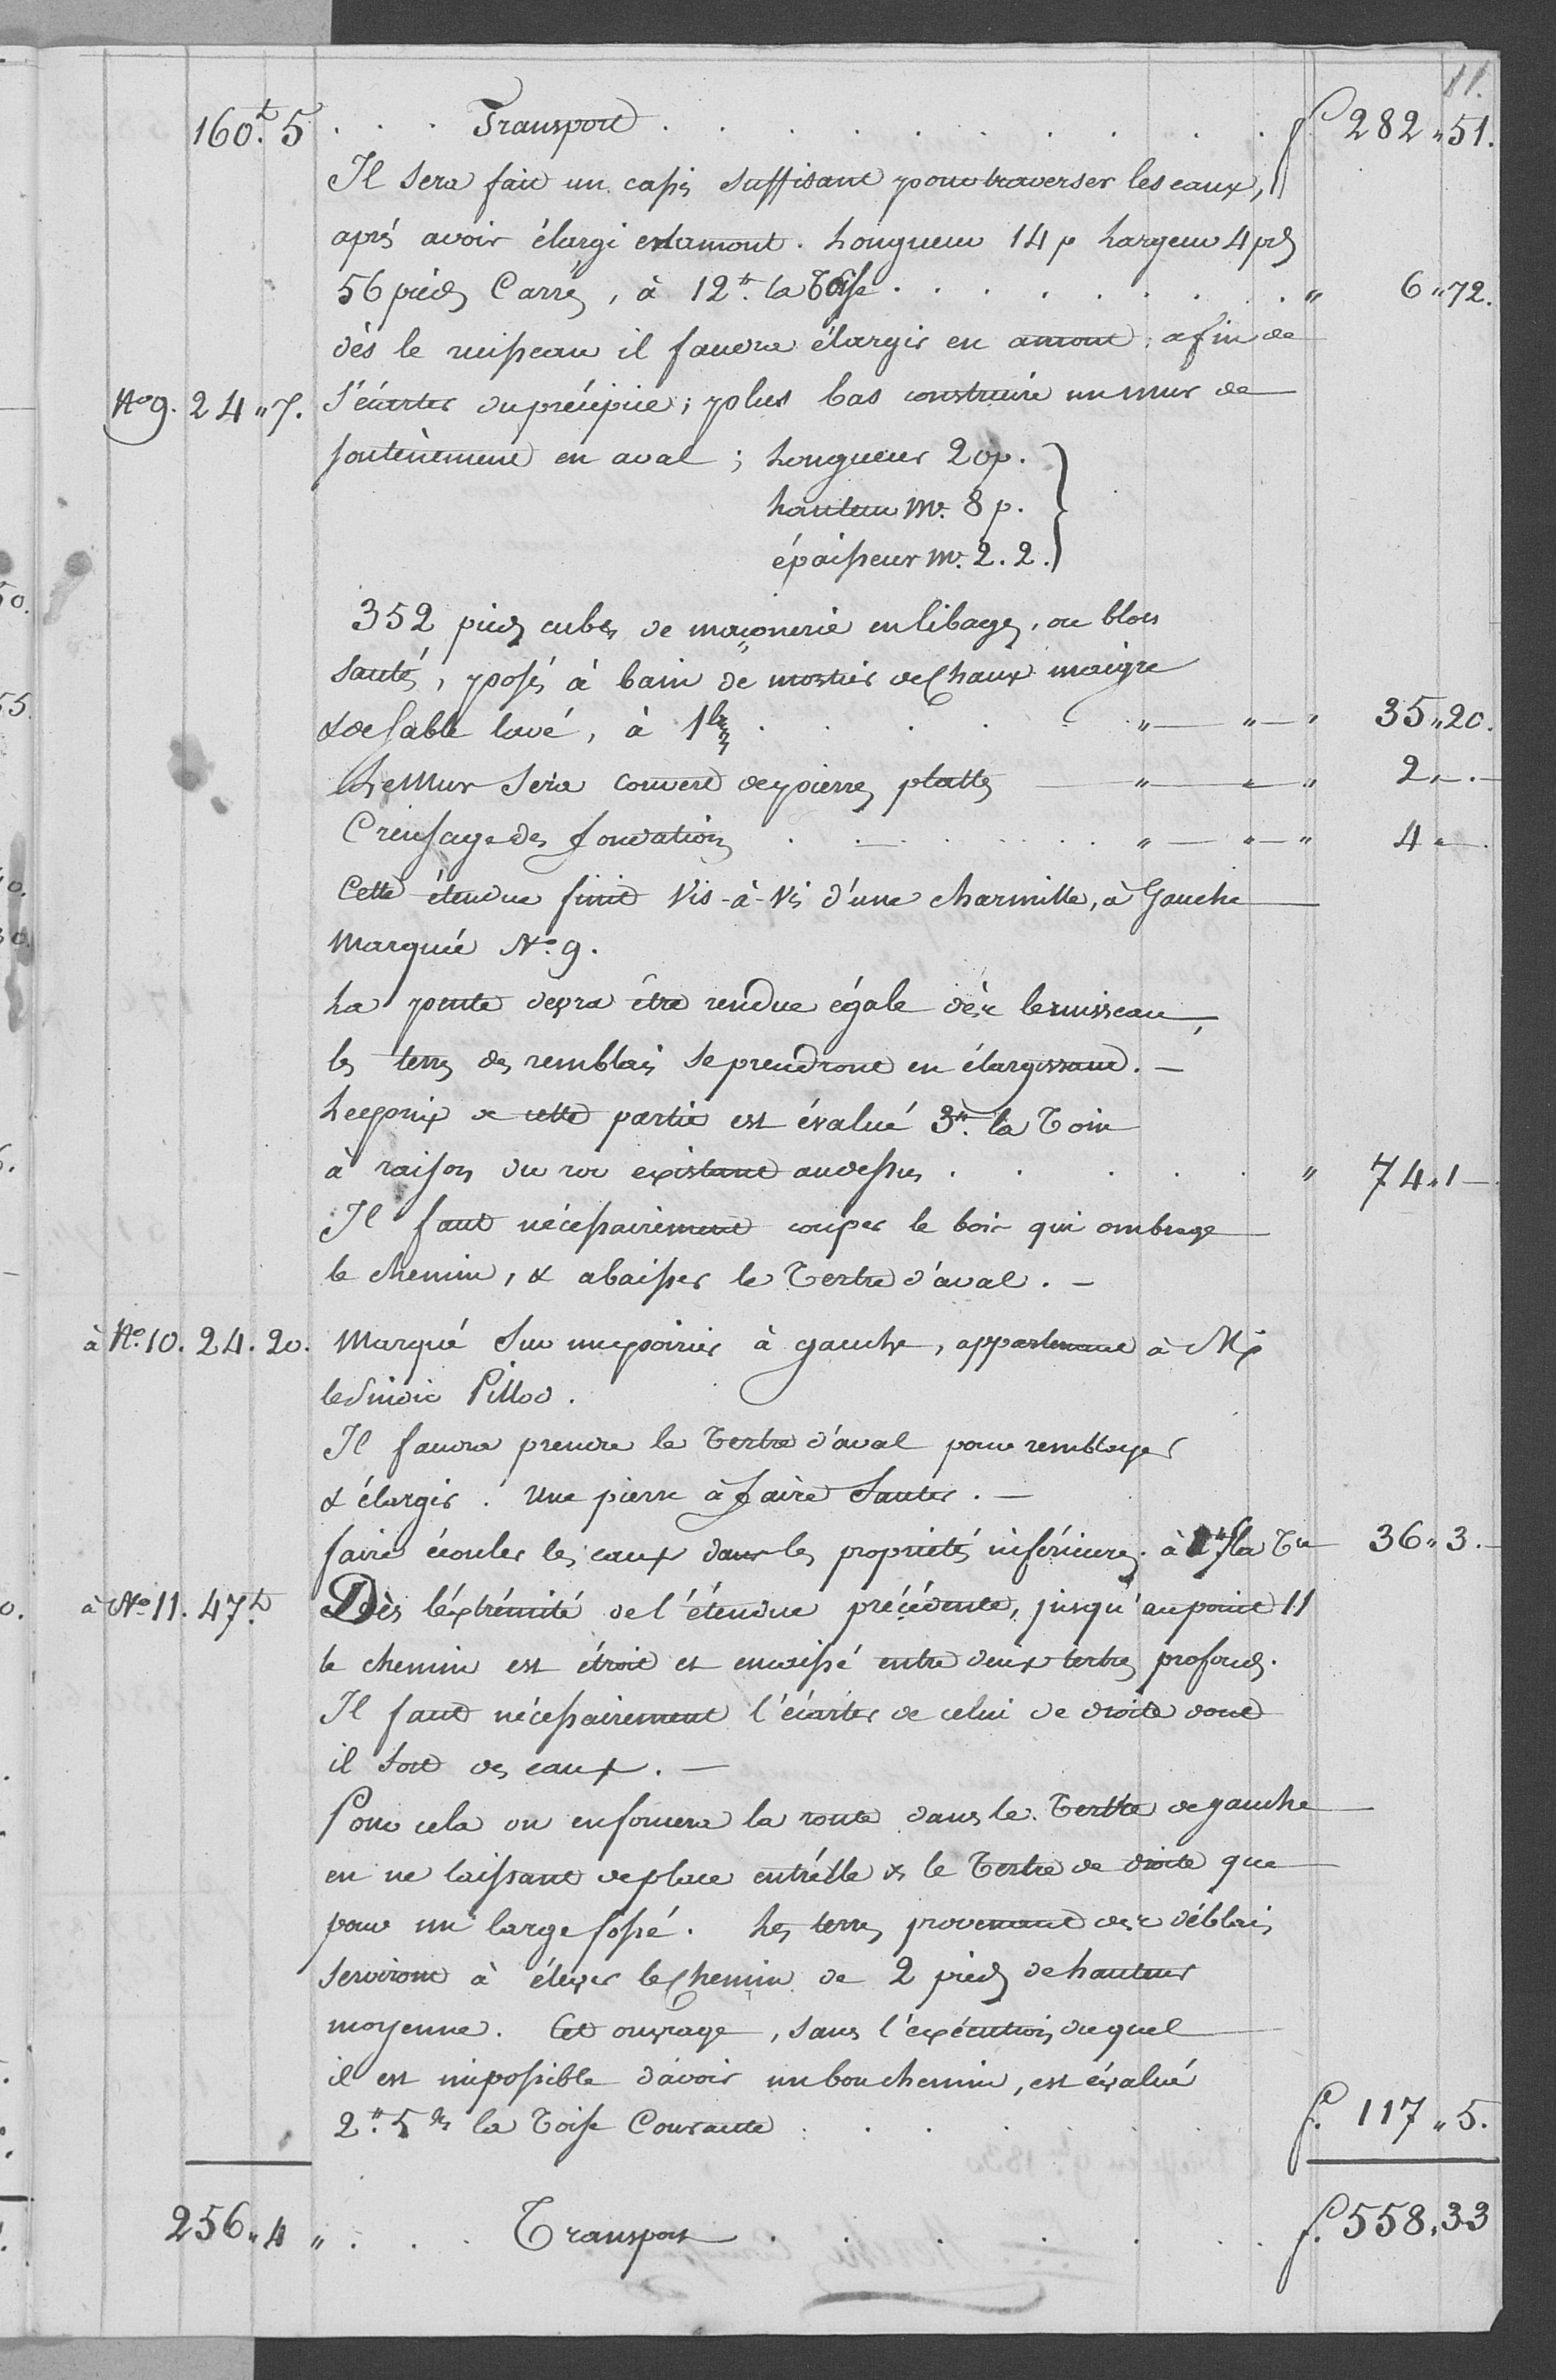 11.
160.t 5 . . . Transport . . . . . . . . . . f 282 „ 51.
Il sera fait un cassis suffisant pour traverser les eaux,
aprés avoir élargi en amont. Longueur 14 p Largeur 4 pds
56 pieds Carrés, à 12.# la Toise . . . . . . . . „ 6 „ 72.
dès le ruisseau il faudra élargir en amont, afin de
No 9. 24 „ 7. s'écarter du précipice; plus bas construire un mur de
soutènement en aval ; Longueur 20 p.
hauteur m. 8 p.
épaisseur m. 2. 2.
352 pieds cubes de maçonerie en libages, ou blocs
sautés, posés à bain de mortier de Chaux maigre
& de sable lavé, à 1 bz . . . . . „ — „ — „ 35 „ 20.
Le Mur sera couvert de pierres plattes — „ — „ — „ 2 „ —. —
Creusage des fondations . . . . . . „ — „ — „ 4 „ —.
Cette étendue finit Vis-à-Vis d'une charmille, à Gauche
Marquée No. 9.
La pente devra être rendue égale dès le ruisseau,
les terres des remblais se prendront en élargissant. —
Le prix de cette partie est évalué 3.# la Toise
à raison du roc existant au dessus . . . . . „ 74 „ 1 —
Il faut nécessairement couper le bois qui ombrage
le chemin, & abaisser le Tertre d'aval. —
à No. 10. 24. 20. Marqué sur un poirier à gauche, appartenant à Mr
le Sindic Pillod.
Il faudra prendre le Tertre d'aval pour remblayer
& élargir. Une pierre à faire Sauter. —
faire écouler les eaux dans les propriétés inférieures. à la Tse 36 „ 3. —
à No 11. 47.t Dès l'éxtrémité de l'étendue précédente, jusqu'au point 11
le chemin est étroit et encaissé entre deux tertres profonds.
Il faut nécessairement l'écarter de celui de droite dont
il sort des eaux. —
Pour cela on enfoncera la route dans le Tertre de gauche
en ne laissant de place entr'elle & le Tertre de droite que
pour un large fossé. Les terres provenant des déblais
serviront à élever le Chemin de 2 pieds de hauteur
moyenne. Cet ouvrage, sans l'exécution duquel
il est impossible d'avoir un bon chemin, est évalué
2.# 5 bz la Toise Courante . . . . . . f. 117 „ 5.
256 „ 4 „ . . . Transport . . . . . . f. 558. 33